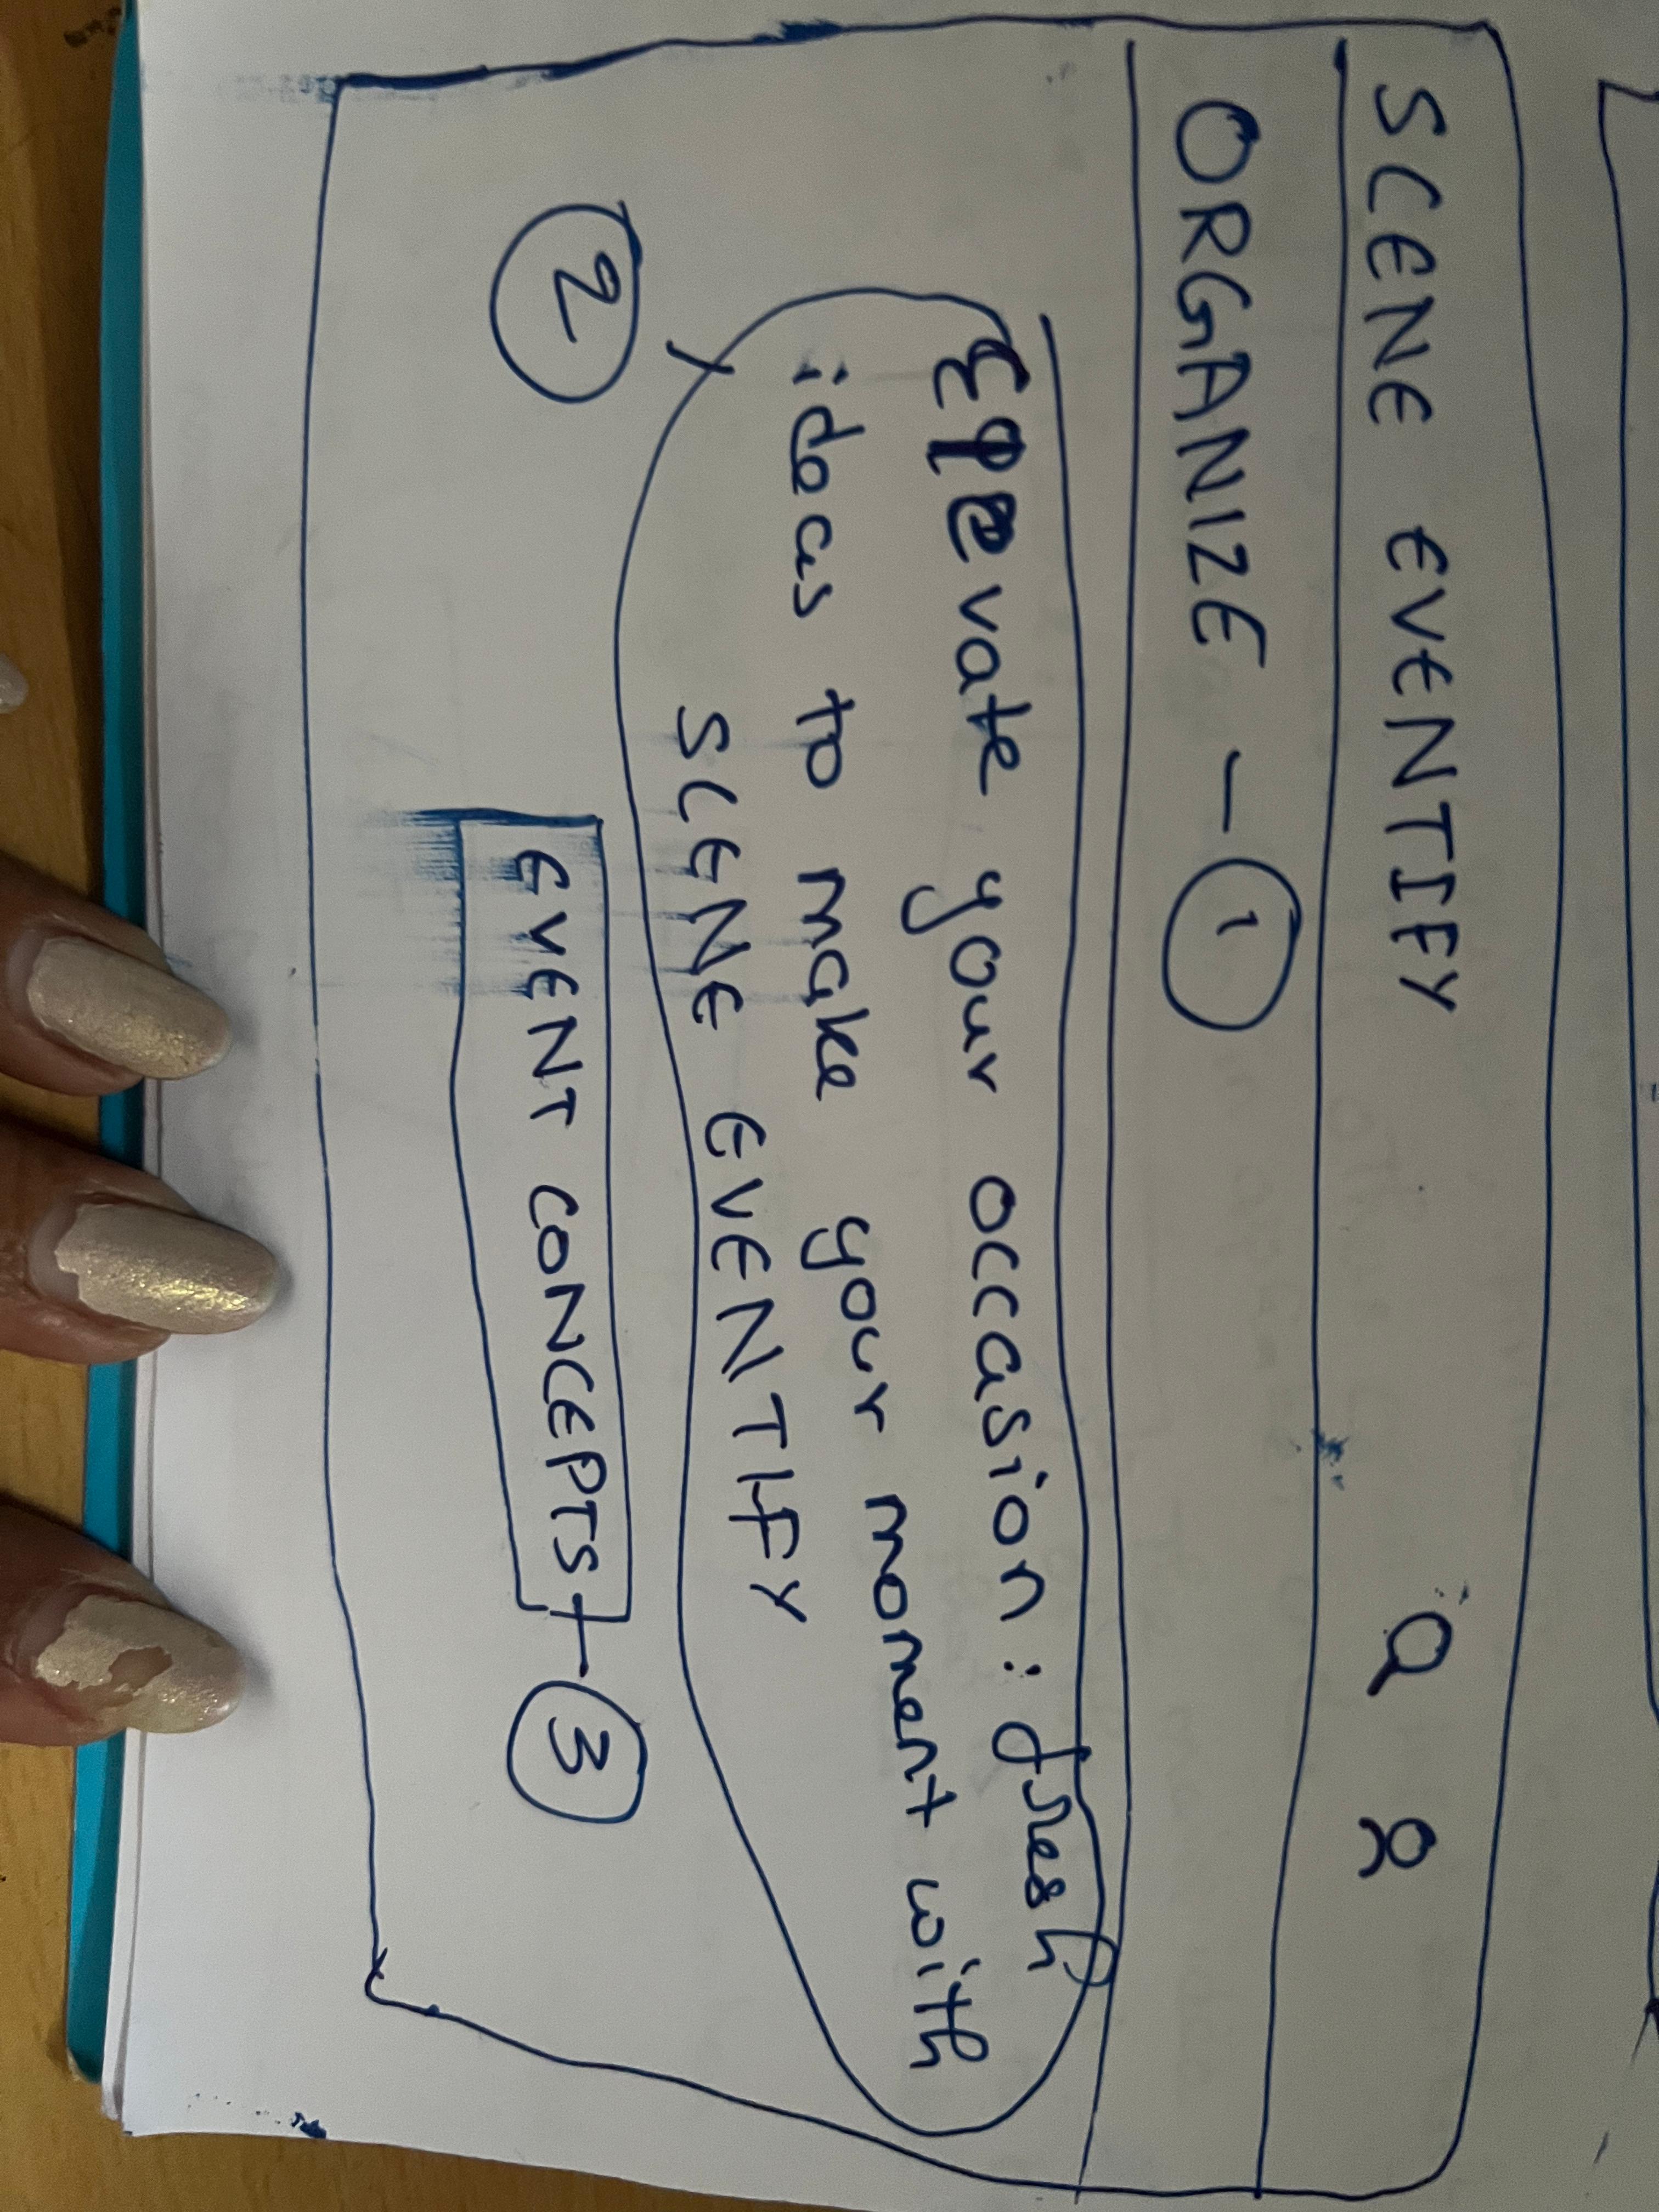 SCENE EVENTIFY
ORGANIZE - 1
Elevate your occasion: fresh
ideas to make your moment with
SCENE EVENTIFY
2
EVENT CONCEPTS - 3